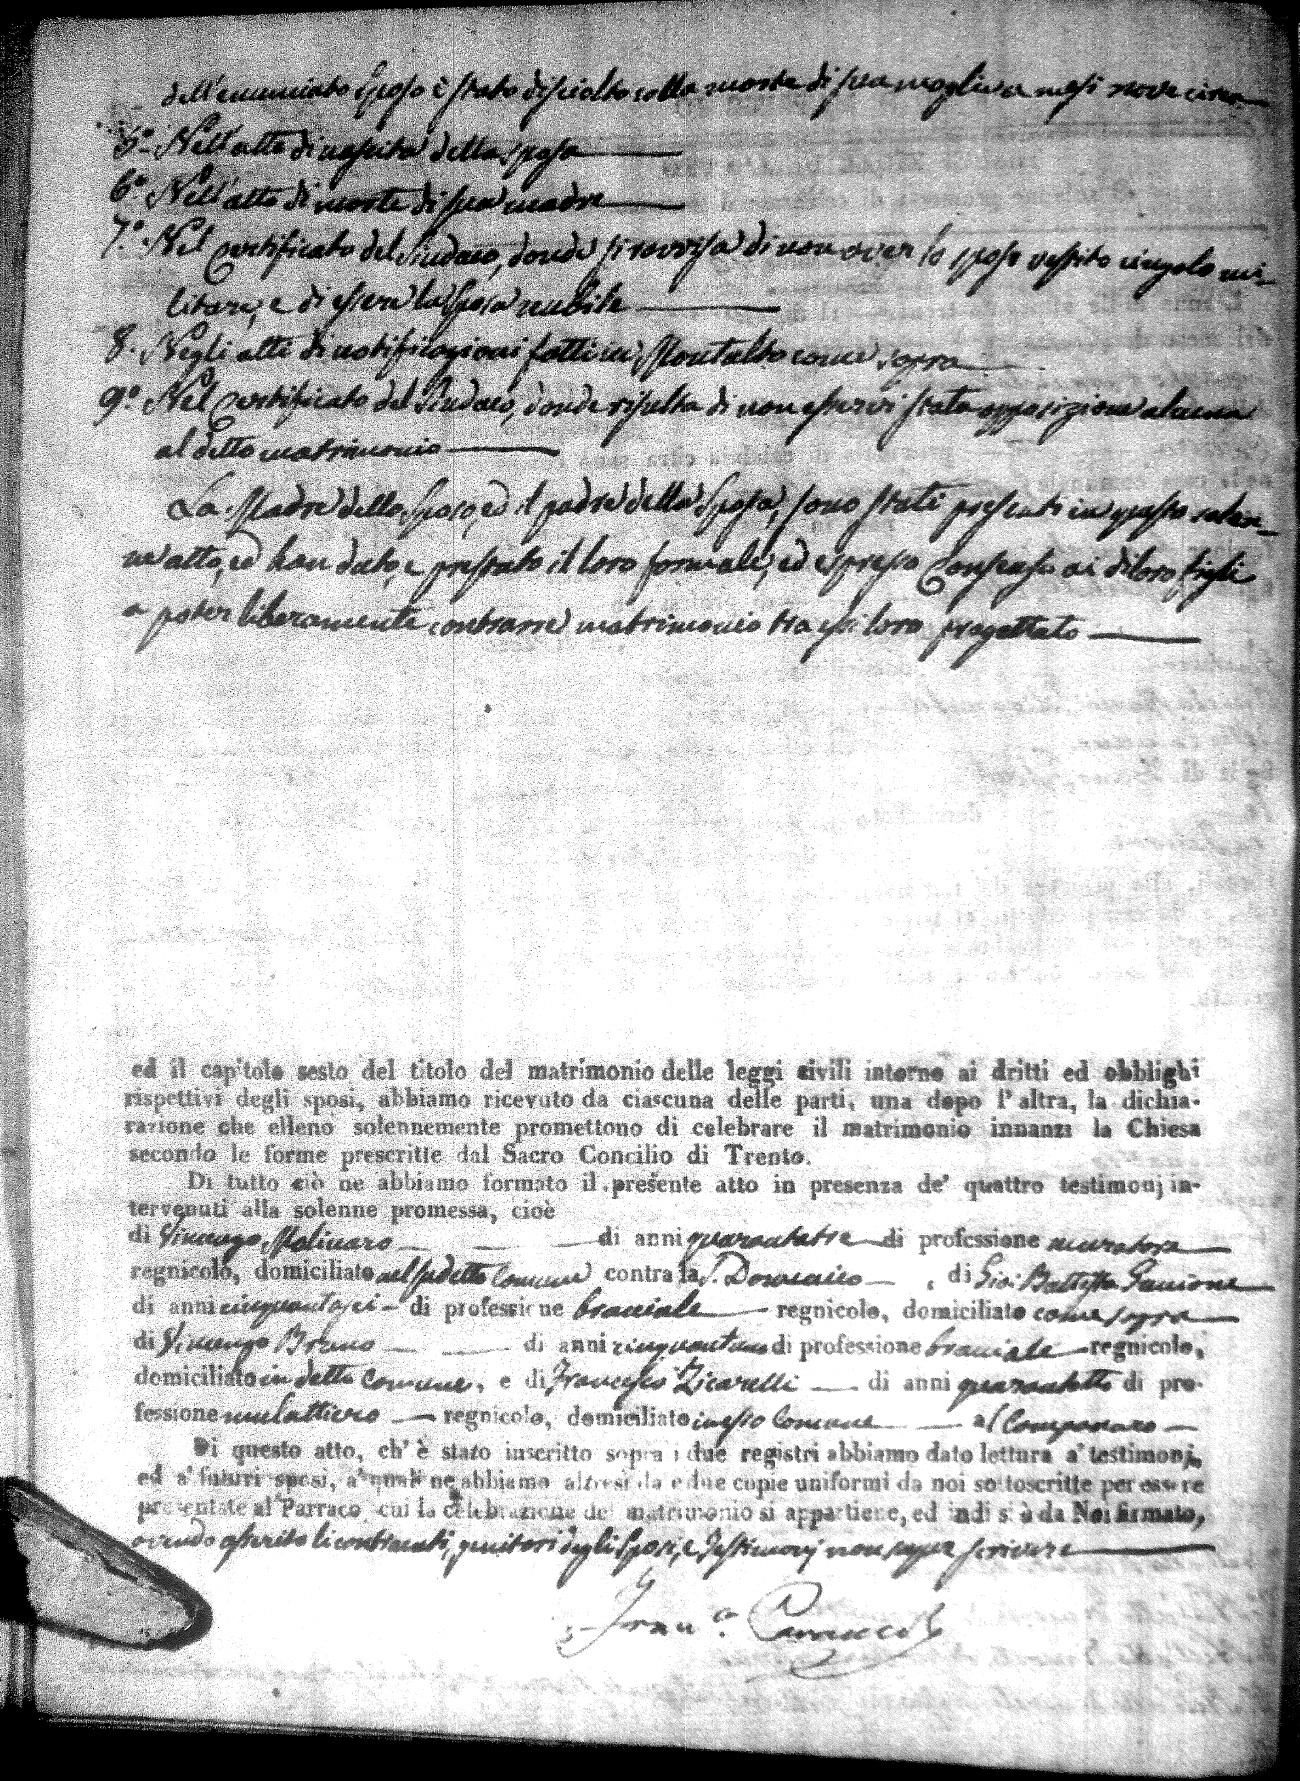 dell'enunciato Sposo è stato disciolto colla morte di sua moglie a mesi nove circa
5.° Nell'atto di nascita della sposa
6.° Nell'atto di morte di sua madre
7.° Nel Certificato del Sindaco, donde si ravvisa di non aver lo sposo vestito cingolo mi-
litare, e di essere la sposa nubile
8. Negli atti di notificazioni fatti in Montalto come sopra
9.° Nel Certificato del Sindaco, donde risulta di non esservi stata opposizione alcuna
al detto matrimonio
La Madre dello Sposo, ed il padre della Sposa, sono stati presenti in questo solen-
ne atto, ed han dato, e prestato il loro formale, ed espresso Consenso ai di loro figli
a poter liberamente contrarre matrimonio tra essi loro progettato
ed il capitolo sesto del titolo del matrimonio delle leggi civili intorno ai dritti ed obblighi
rispettivi degli sposi, abbiamo ricevuto da ciascuna delle parti, una dopo l'altra, la dichia-
razione che elleno solennemente promettono di celebrare il matrimonio innanzi la Chiesa
secondo le forme prescritte dal Sacro Concilio di Trento.
Di tutto ciò ne abbiamo formato il presente atto in presenza de' quattro testimonj in-
tervenuti alla solenne promessa, cioè
di Vincenzo Molinaro di anni quarantatre di professione muratore
regnicolo, domiciliato nel sudetto Comune contra la S. Domenico, di Gio: Battista
di anni cinquantasei di professione bracciale regnicolo, domiciliato come sopra
di Vincenzo Bruno di anni cinquantuno di professione bracciale regnicolo,
domiciliato in detto Comune, e di Francesco Zicarelli di anni quarantotto di pro-
fessione mulattiero regnicolo, domiciliato in esso Comune al Campanaro
Di questo atto, ch'è stato inscritto sopra i due registri abbiamo dato lettura a' testimonj,
ed a' futuri sposi, a' quali ne abbiamo altresì date due copie uniformi da noi sottoscritte per essere
presentate al Parraco, cui la celebrazione del matrimonio si appartiene, ed indi si è da Noi firmato,
avendo asserito li contraenti, genitori degli Sposi, e Testimonj non saper scrivere
Fran.co